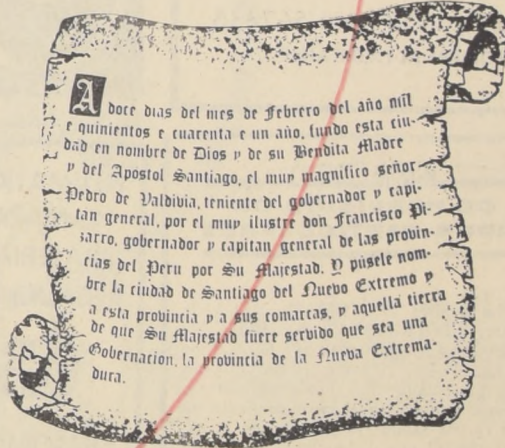 A doce dias del mes de Febrero del año mil
e quinientos e cuarenta e un año, fundo esta ciu-
dad en nombre de Dios y de su Bendita Madre
y del Apóstol Santiago, el muy magnifico señor
Pedro de Valdivia, teniente del gobernador y capi-
tan general, por el muy ilustre don Francisco Pi-
zarro, gobernador y capitan general de las provin-
cias del Peru por Su Majestad. Y púsele nom-
bre la ciudad de Santiago del Nuevo Extremo y
a esta provincia y a sus comarcas, y aquella tierra
de que Su Majestad fuere servido que sea una
Gobernacion, la provincia de la Nueva Extrema-
dura.